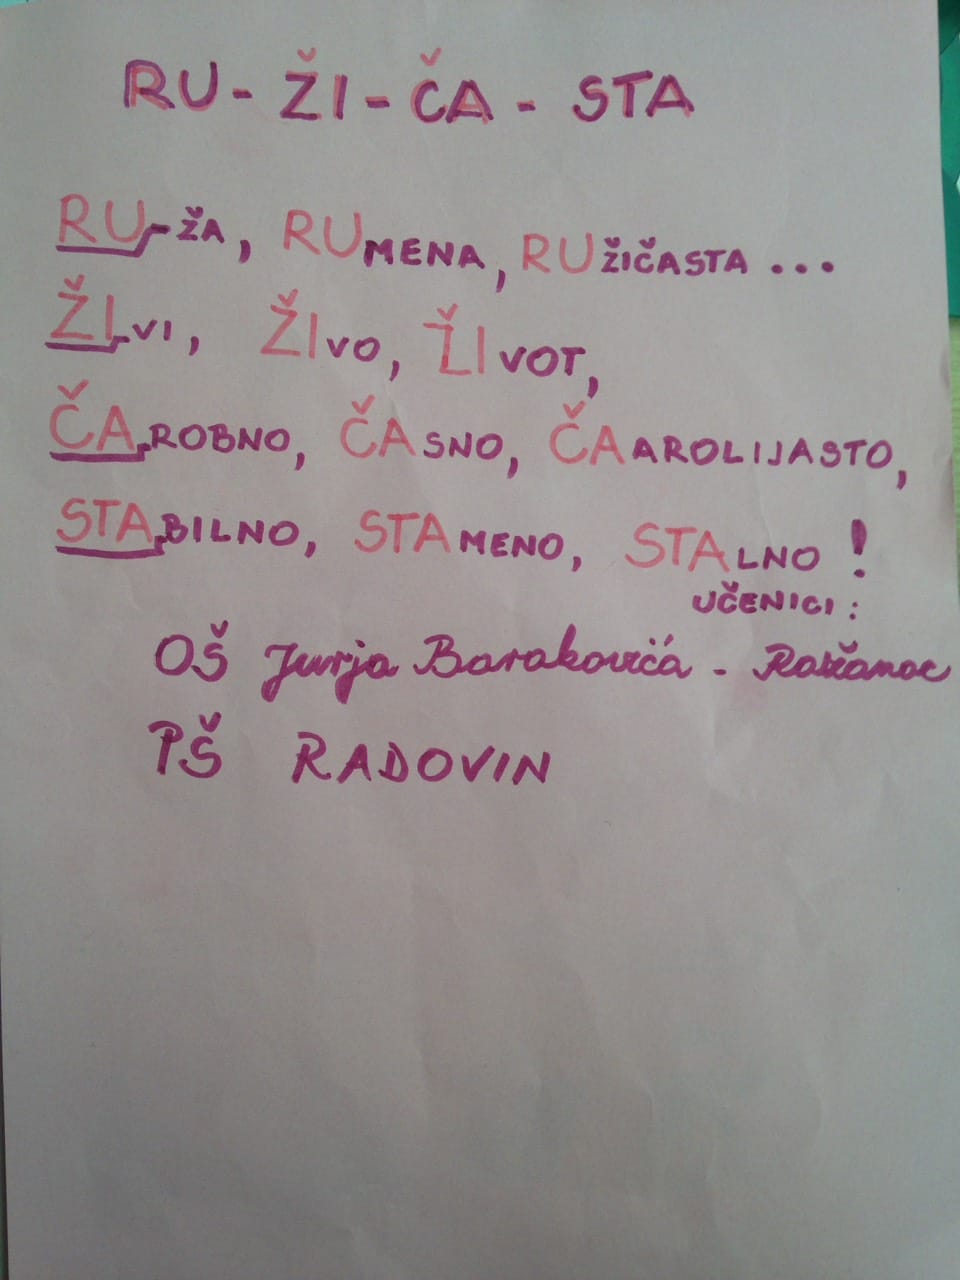 RU - ŽI - ČA - STA
RU-ŽA, RUMENA, RUŽIČASTA ...
ŽIVI, ŽIVO, ŽIVOT,
ČAROBNO, ČASNO, ČAAROLIJASTO,
STABILNO, STAMENO, STALNO!
UČENICI:
OŠ Jurja Barakovića - Ražanac
PŠ RADOVIN